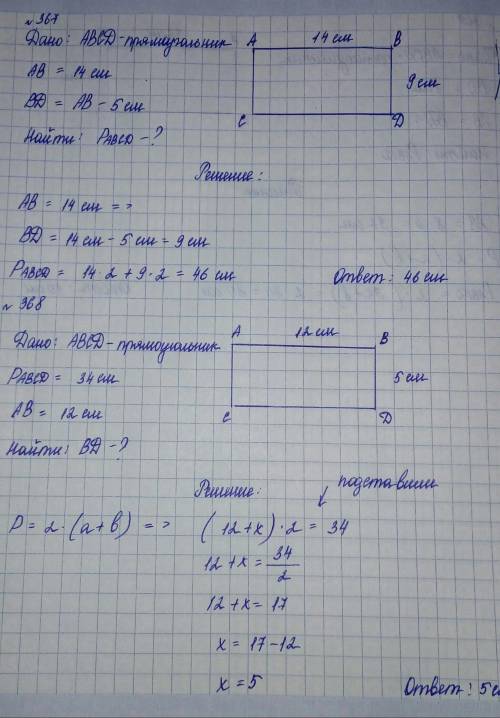 № 367
Дано: ABCD-прямоугольник
A 14 см B
AB = 14 см
9 см
BD = AB - 5 см
C D
Найти: PABCD - ?
Решение:
AB = 14 см =>
BD = 14 см - 5 см = 9 см
PABCD = 14·2 + 9·2 = 46 см
Ответ: 46 см
№ 368
A 12 см B
Дано: ABCD-прямоугольник
PABCD = 34 см
5 см
AB = 12 см
C D
Найти: BD - ?
Решение:
подставили
P = 2·(a+b) => (12+x)·2 = 34
12+x = 34/2
12+x = 17
x = 17-12
x = 5
Ответ: 5 см